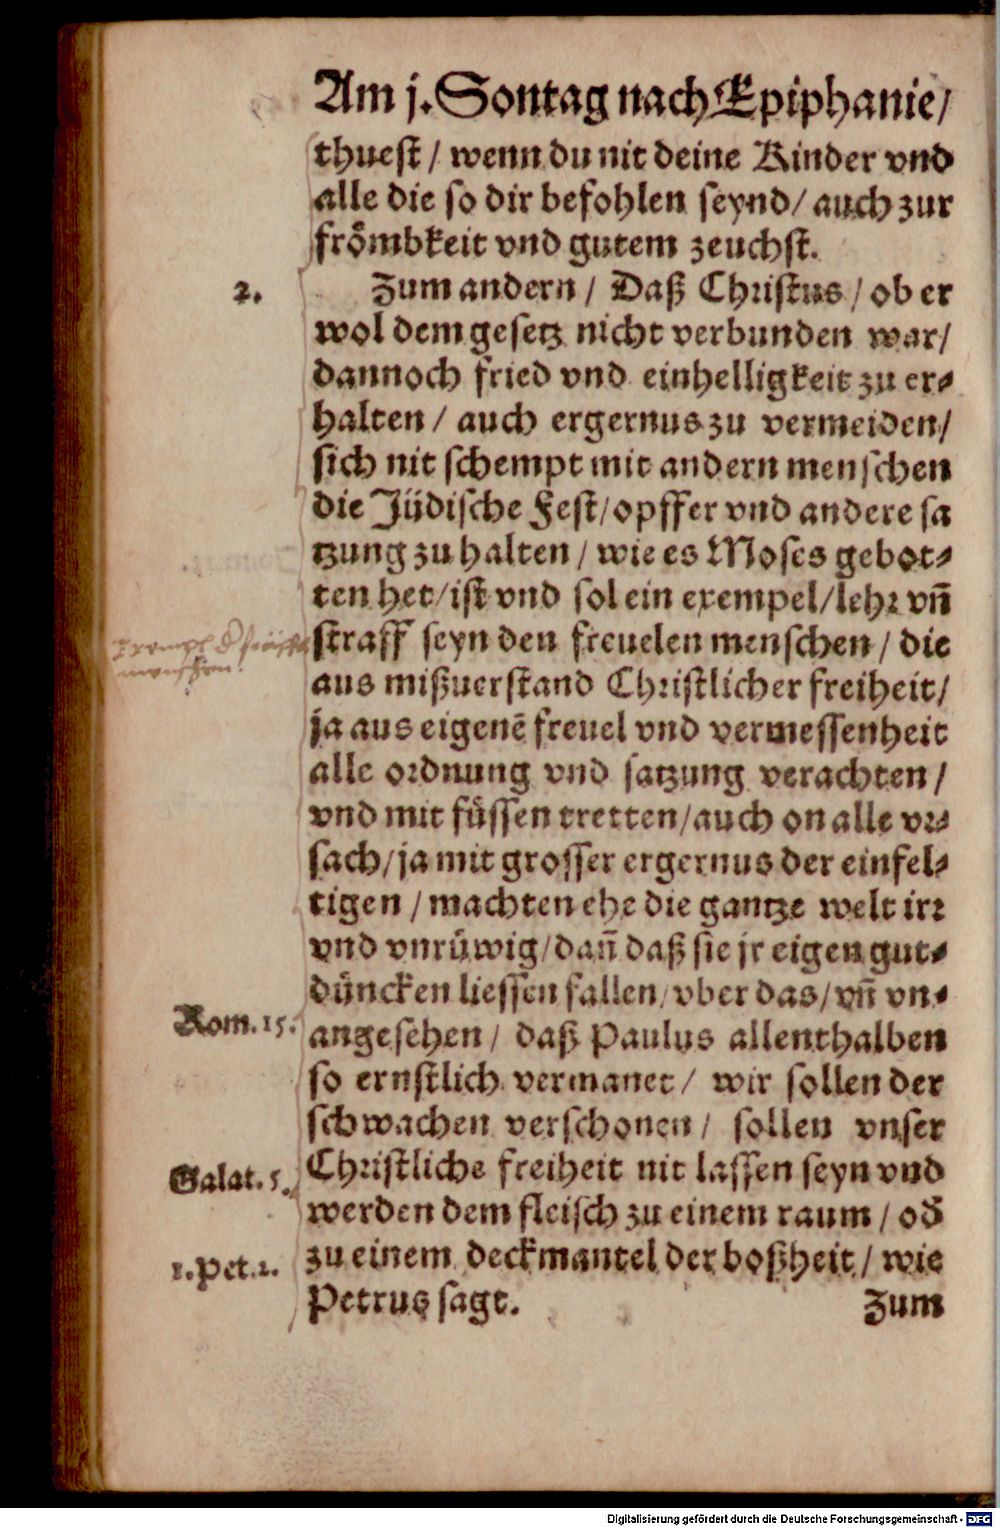 Am j. Sontag nach Epiphanie/
thuest / wenn du nit deine Kinder vnd
alle die so dir befohlen seynd/ auch zur
frömbkeit vnd gutem zeuchst.
2.
Zum andern / Daß Christus / ob er
wol dem gesetz nicht verbunden war/
dannoch fried vnd einhelligkeit zu er⸗
halten / auch ergernus zu vermeiden/
sich nit schempt mit andern menschen
die Jüdische Fest/opffer vnd andere sa
tzung zu halten / wie es Moses gebot⸗
ten het/ist vnd sol ein exempel/lehr vñ
straff seyn den freuelen menschen / die
aus mißuerstand Christlicher freiheit/
ja aus eigenē freuel vnd vermessenheit
alle ordnung vnd satzung verachten /
vnd mit füssen tretten/auch on alle vr⸗
sach/ja mit grosser ergernus der einfel⸗
tigen / machten ehe die gantze welt irr
vnd vnrüwig/dañ daß sie jr eigen gut⸗
düncken liessen fallen/vber das/vñ vn⸗
Rom. 15.
angesehen / daß Paulus allenthalben
so ernstlich vermanet / wir sollen der
schwachen verschonen / sollen vnser
Galat. 5.
Christliche freiheit nit lassen seyn vnd
werden dem fleisch zu einem raum / od
1. Pet. 2.
zu einem deckmantel der boßheit / wie
Petrus sagt.
Zum
Digitalisierung gefördert durch die Deutsche Forschungsgemeinschaft - DFG